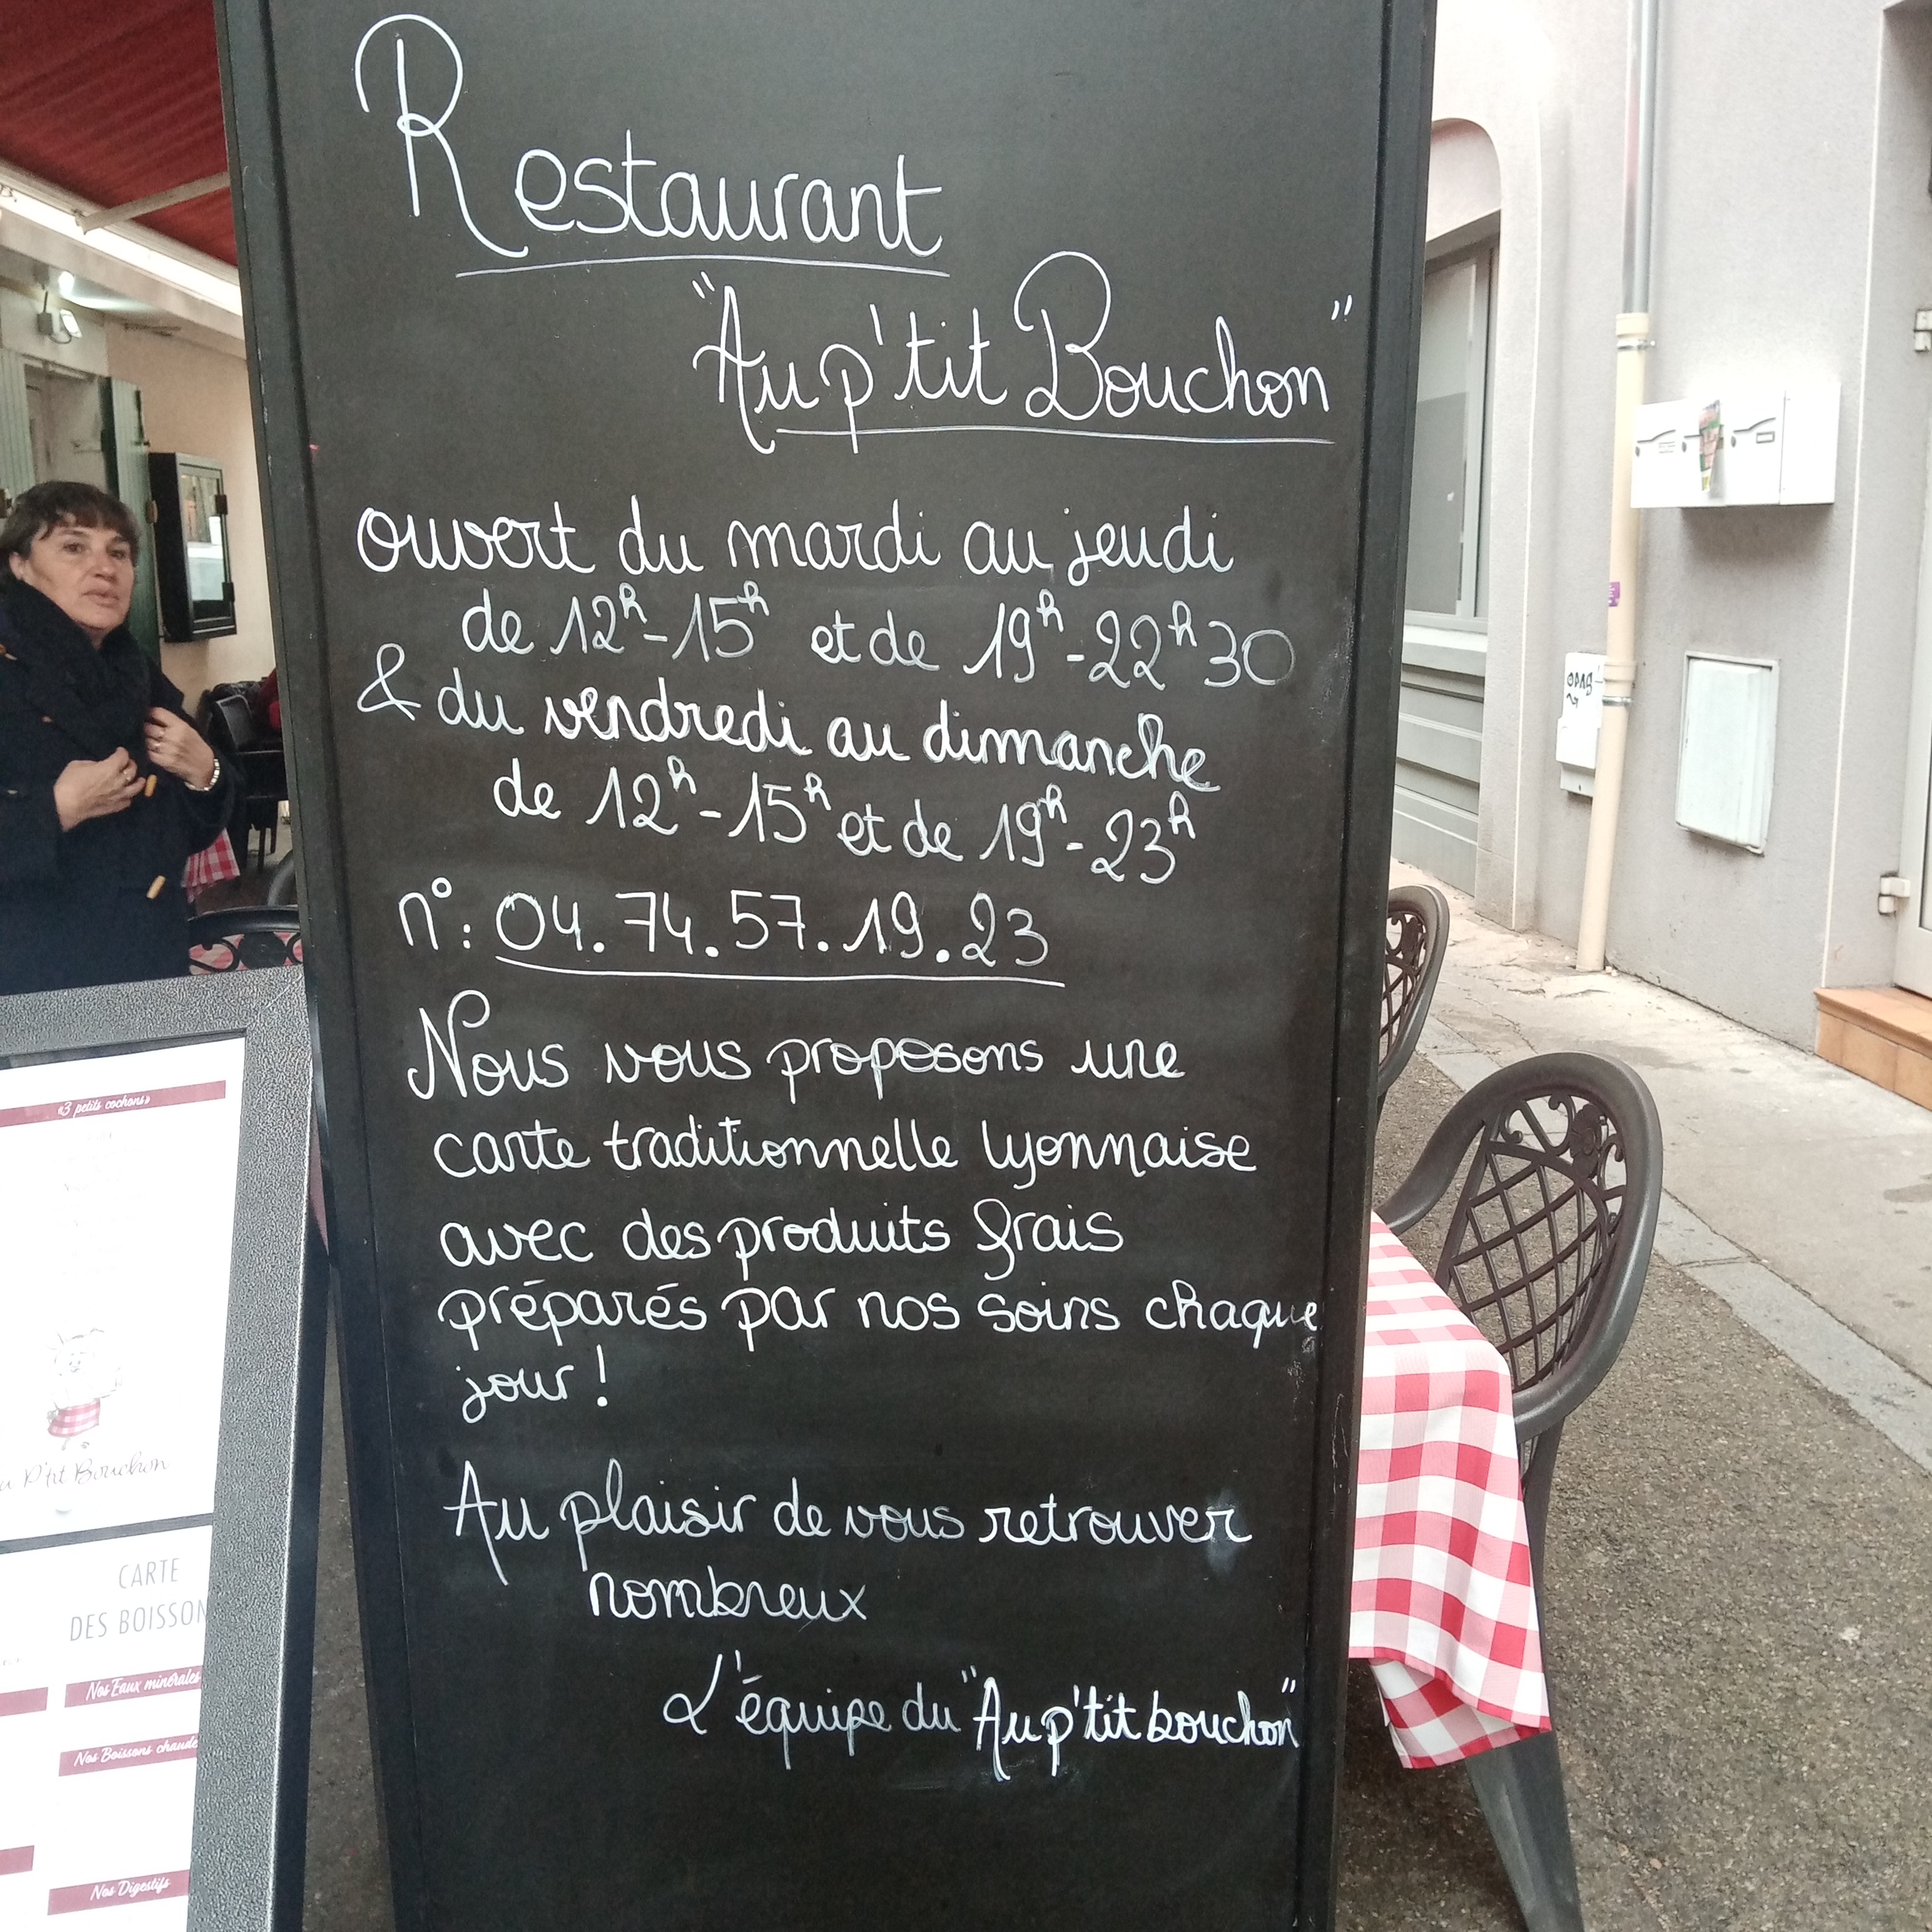 Restaurant
"Au p'tit Bouchon"
ouvert du mardi au jeudi
de 12h-15h et de 19h-22h30
& du vendredi au dimanche
de 12h-15h et de 19h-23h
n°: 04.74.57.19.23
Nous vous proposons une
carte traditionnelle lyonnaise
avec des produits frais
préparés par nos soins chaque
jour !
Au plaisir de vous retrouver
nombreux
L'équipe du "Au p'tit bouchon"
«3 petits cochons»
u P'tit Bouchon
CARTE
DES BOISSON
Nos Eaux minérales
Nos Boissons chaude
Nos Digestifs